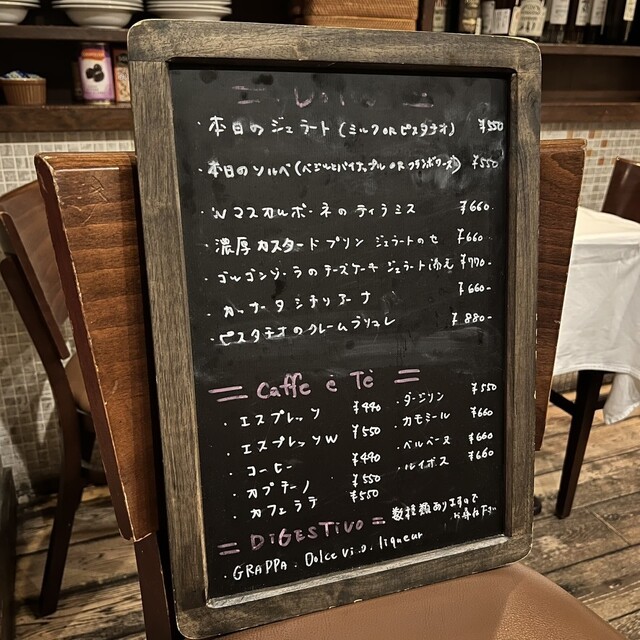 = Dolce =
・本日のジェラート(ミルク OR ピスタチオ) ¥550
・本日のソルベ(バジルとパイナップル OR フランボワーズ) ¥550
・Wマスカルポーネのティラミス ¥660-
・濃厚カスタードプリン ジェラートのせ ¥660-
・ゴルゴンゾーラのチーズケーキ ジェラート添え ¥770-
・カッサータ シチリアーナ ¥660-
・ピスタチオのクレームブリュレ ¥880-
= Caffe è Tè =
・エスプレッソ ¥440
・エスプレッソW ¥550
・コーヒー ¥440
・カプチーノ ¥550
・カフェラテ ¥550
・ダージリン ¥550
・カモミール ¥660
・ベルベーヌ ¥660
・ルイボス ¥660
= DiGESTiVO = 数種類ありますので
お尋ね下さい
・GRAPPA . Dolce Vi.o. liqueur